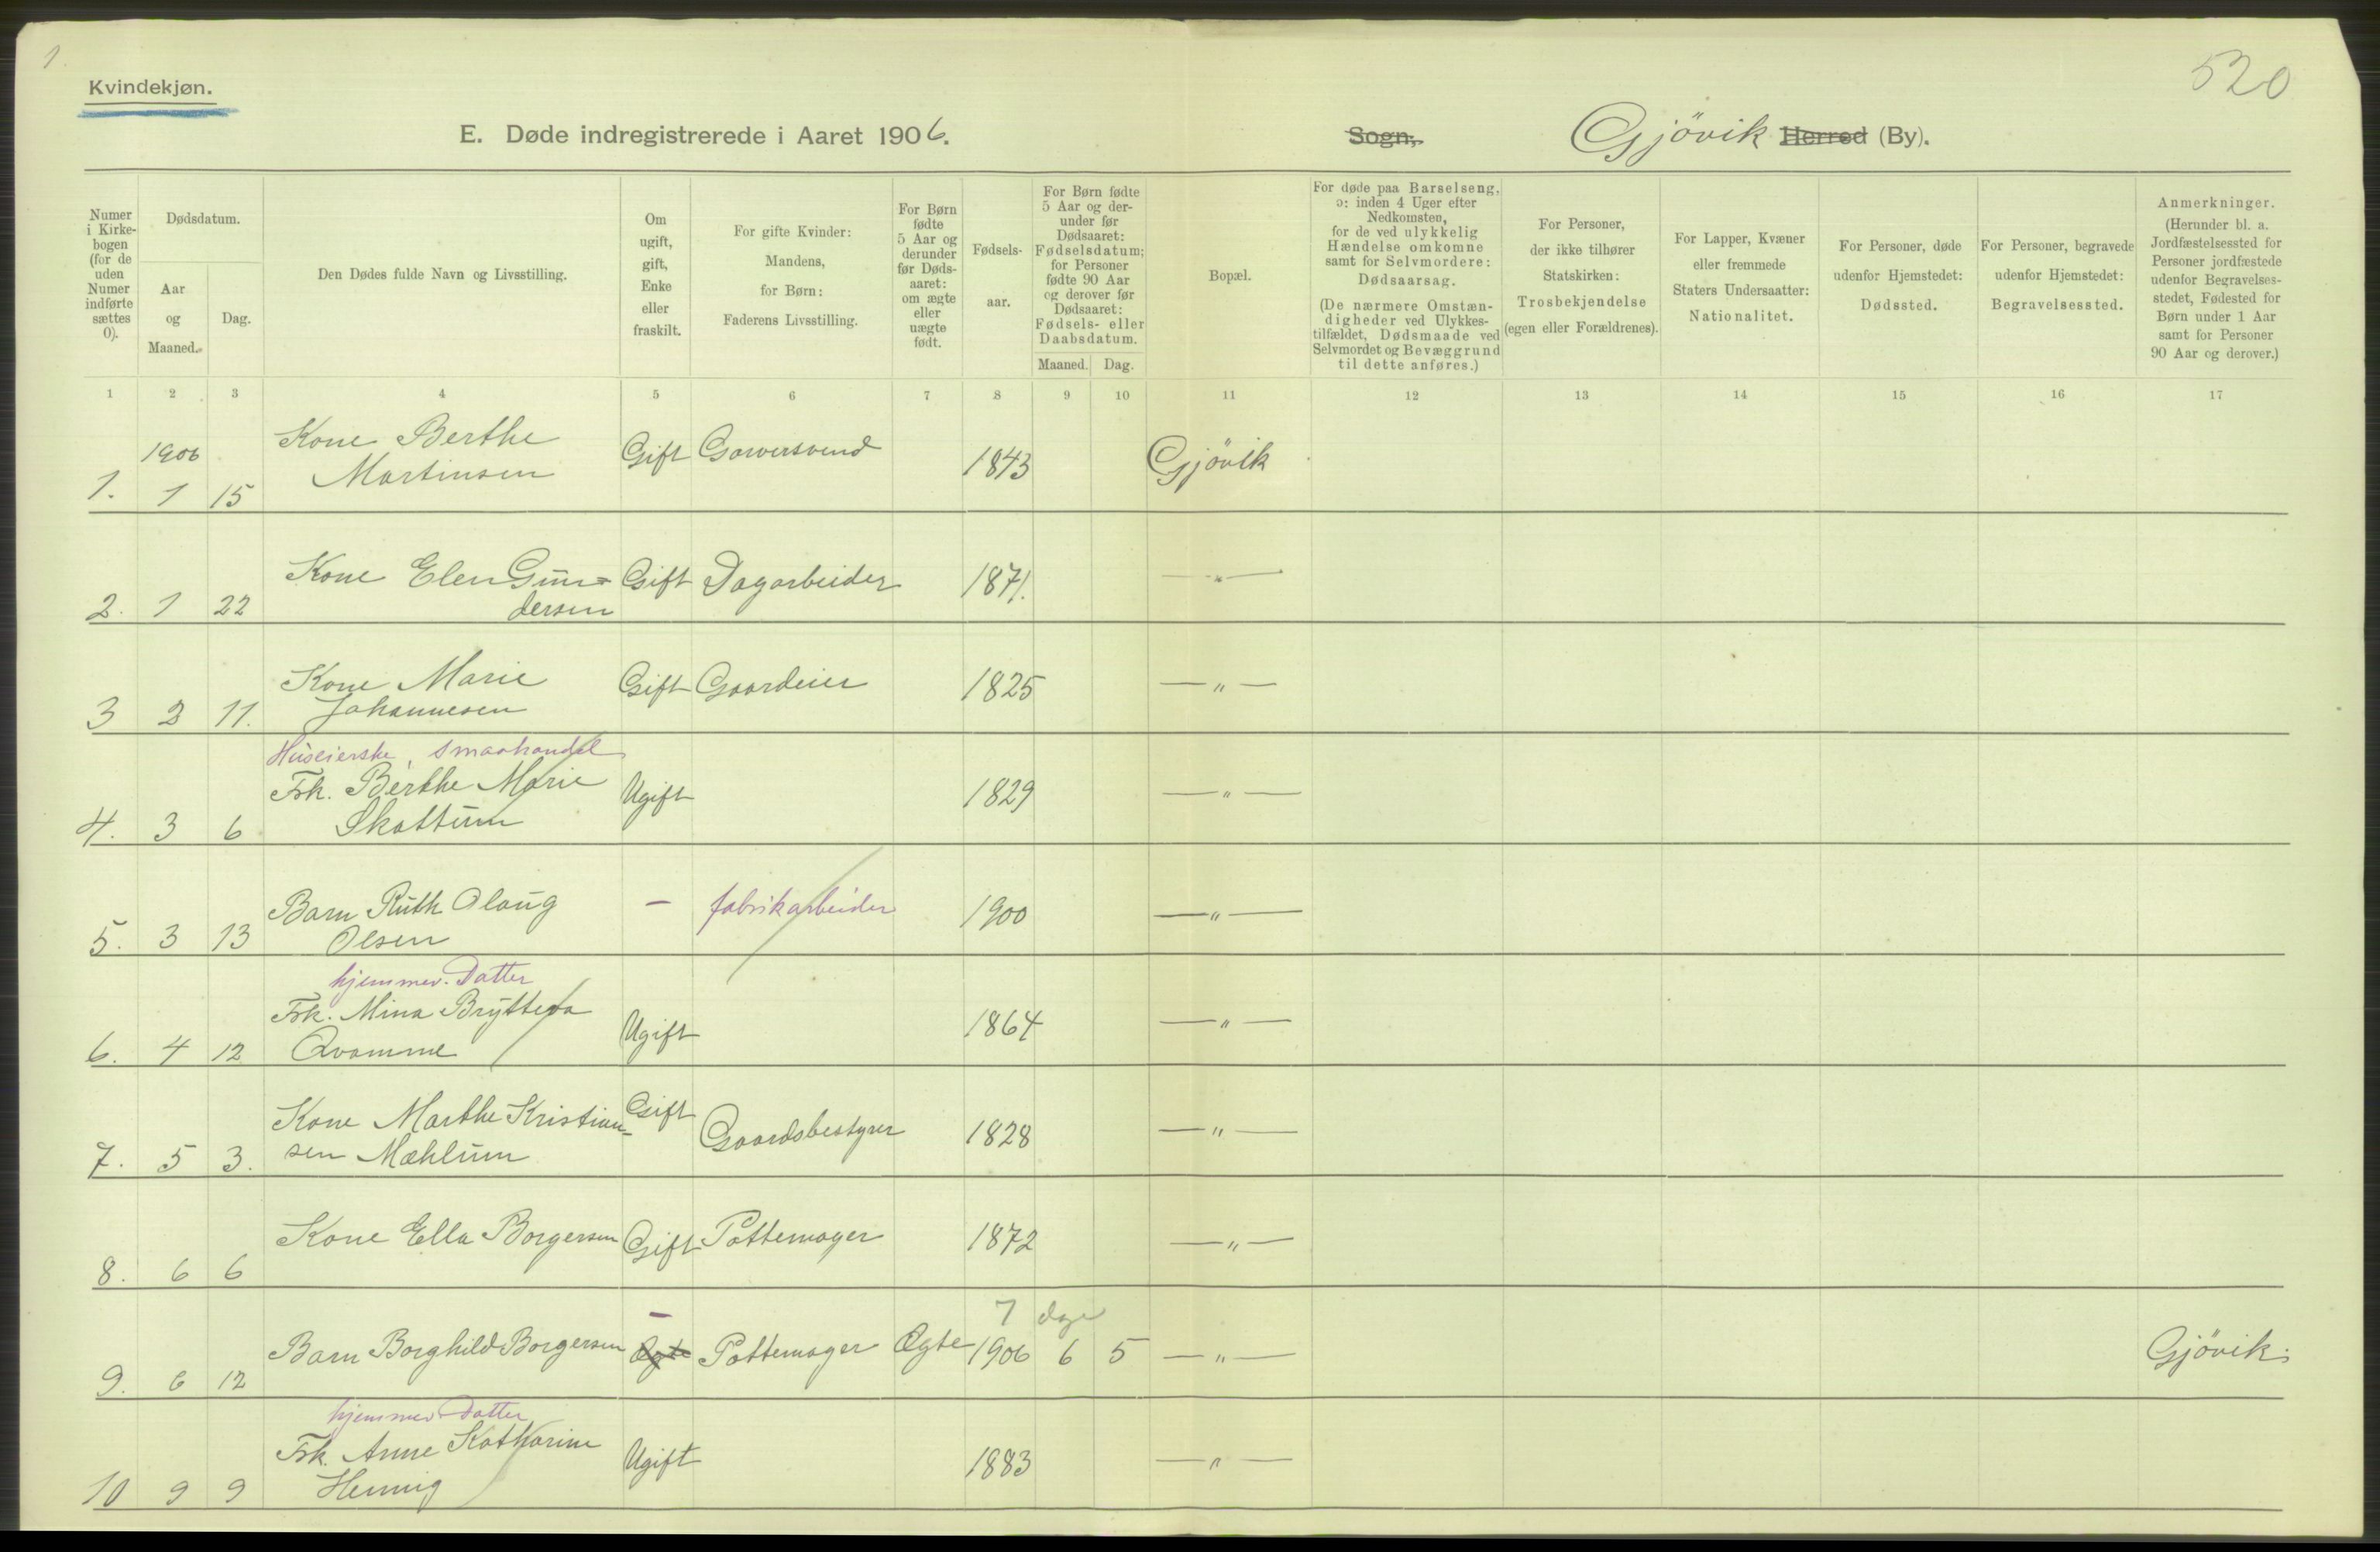 1.
520
Kvindekjøn.
E. Døde indregistrerede i Aaret 1906.
Sogn, Gjövik Herred (By).
Numer i Kirke-bogen (for de uden Numer indførte sættes 0).
Dødsdatum.
Aar og Maaned.
Dag.
Den Dødes fulde Navn og Livsstilling.
Om ugift, gift, Enke eller fraskilt.
For gifte Kvinder: Mandens, for Børn: Faderens Livsstilling.
For Børn fødte 5 Aar og derunder før Døds-aaret: om ægte eller uægte født.
Fødsels-aar.
For Børn fødte 5 Aar og der-under før Dødsaaret: Fødselsdatum; for Personer fødte 90 Aar og derover før Dødsaaret: Fødsels- eller Daabsdatum.
Maaned. Dag.
Bopæl.
For døde paa Barselseng, ɔ: inden 4 Uger efter Nedkomsten, for de ved ulykkelig Hændelse omkomne samt for Selvmordere: Dødsaarsag.
(De nærmere Omstæn-digheder ved Ulykkes-tilfældet, Dødsmaade ved Selvmordet og Bevæggrund til dette anføres.)
For Personer, der ikke tilhører Statskirken: Trosbekjendelse (egen eller Forældrenes).
For Lapper, Kvæner eller fremmede Staters Undersaatter: Nationalitet.
For Personer, døde udenfor Hjemstedet: Dødssted.
For Personer, begravede udenfor Hjemstedet: Begravelsessted.
Anmerkninger.
(Herunder bl. a. Jordfæstelsessted for Personer jordfæstede udenfor Begravelses-stedet, Fødested for Børn under 1 Aar samt for Personer 90 Aar og derover.)
1 2 3 4 5 6 7 8 9 10 11 12 13 14 15 16 17
1906
Kone Berthe
1. 1 15 Martinsen Gift Garversvend 1843 Gjövik
Kone Elen Gun=
2. 1 22 dersen Gift Dagarbeider 1871. — " —
Kone Marie
3 2 11. Johannesen Gift Gaardeier 1825 — " —
Huseierske, smaahandel
Frk. Berthe Marie
4. 3 6 Skattum Ugift 1829 — " —
Barn Ruth Olaug
5. 3 13 Olsen — fabrikarbeider 1900 — " —
hjemmev. Datter
Frk. Mina Brytteva
6. 4 12 Qvamme Ugift 1864 — " —
Kone Marthe Kristian-
7. 5 3. sen Mæhlum Gift Gaardsbestyrer 1828 — " —
8. 6 6 Kone Ella Borgersen Gift Pottemager 1872 — " —
— 7 dage
9. 6 12 Barn Borghild Borgersen Ægte Pottemager Ægte 1906 6 5 — " — Gjövik.
hjemmev Datter
Frk. Anne Katharine
10 9 9 Hennig Ugift 1883 — " —